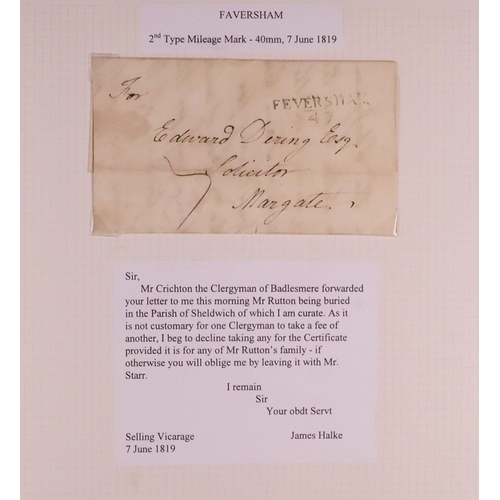 FAVERSHAM
2nd Type Mileage Mark - 40mm, 7 June 1819
For
FEVERSHAM
47
Edward Dering Esq.
Solicitor
7
Margate.
Sir,
Mr Crichton the Clergyman of Badlesmere forwarded
your letter to me this morning Mr Rutton being buried
in the Parish of Sheldwich of which I am curate. As it
is not customary for one Clergyman to take a fee of
another, I beg to decline taking any for the Certificate
provided it is for any of Mr Rutton's family - if
otherwise you will oblige me by leaving it with Mr.
Starr.
I remain
Sir
Your obdt Servt
Selling Vicarage James Halke
7 June 1819